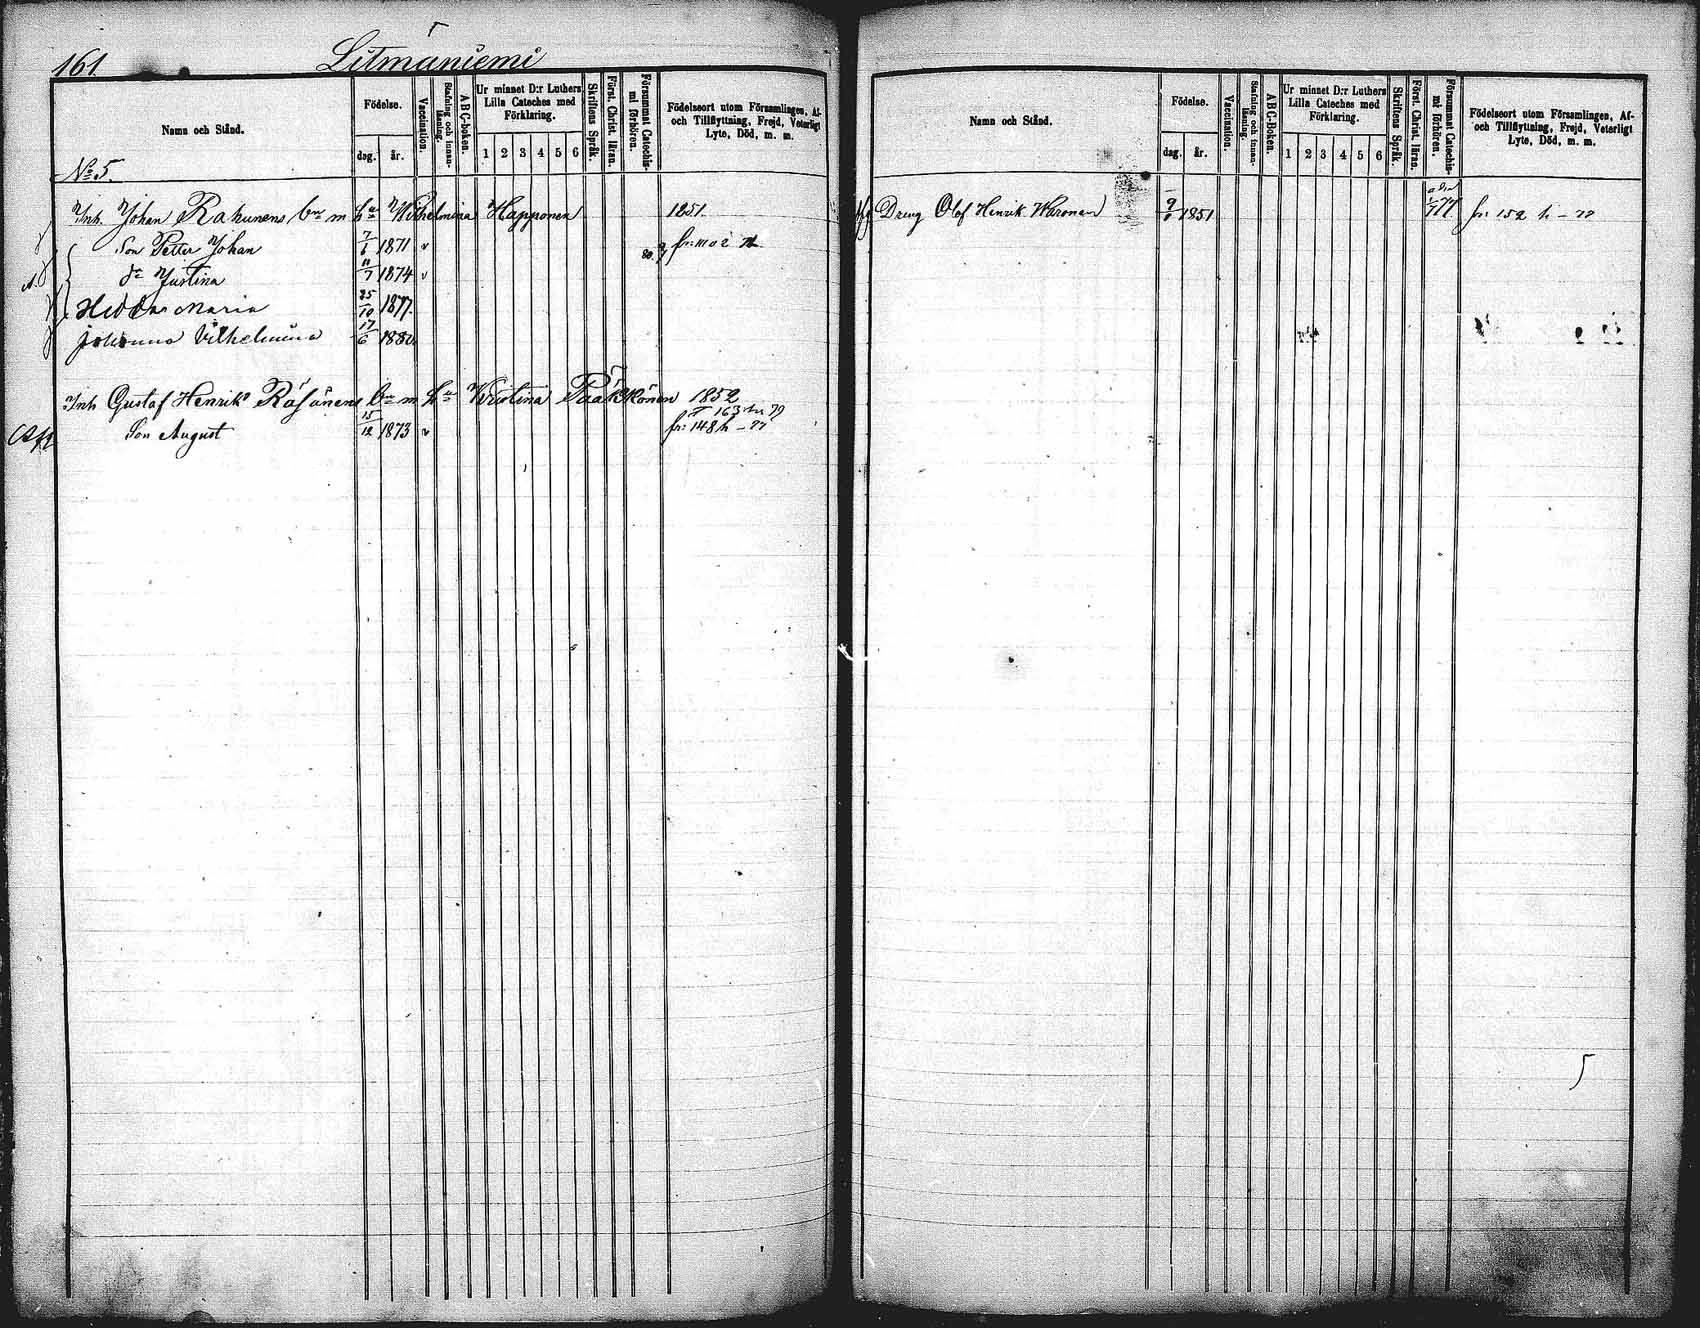 161
Litmaniemi
Namn och Stånd.
Födelse.
dag. år.
Vaccination.
Stafning och innan-
läsning.
ABC-boken.
Ur minnet D:r Luthers
Lilla Cateches med
Förklaring.
1 2 3 4 5 6
Skriftens Språk.
Först. Christ. läran.
Försummat Catechis-
mi förhören.
Födelseort utom Församlingen, Af-
och Tillflyttning, Frejd, Veterligt
Lyte, Död, m. m.
No 5.
Inh. Johan Rahunens bn m hu Wilhelmina Happonen 1851.
Son Petter Johan 7/6 1871 v
dr Justina 11/7 1874 v
Hedda Maria 25/10 1877.
Johanna Vilhelmina 17/6 1880
Inh Gustaf Henrik Räsänens bn m hu Kristina Pääkkönen 1852
T 163 hr 79
Son August 15/12 1873 v fr: 148 h - 77
Namn och Stånd.
Födelse.
dag. år.
Vaccination.
Stafning och innan-
läsning.
ABC-Boken.
Ur minnet D:r Luthers
Lilla Cateches med
Förklaring.
1 2 3 4 5 6
Skriftens Språk.
Först. Christ. läran.
Försummat Catechis-
mi förhören.
Födelseort utom Församlingen, Af-
och Tillflyttning, Frejd, Veterligt
Lyte, Död, m. m.
Dreng Olof Henrik Waronen 1851 77 fr: 152 h - 77
5